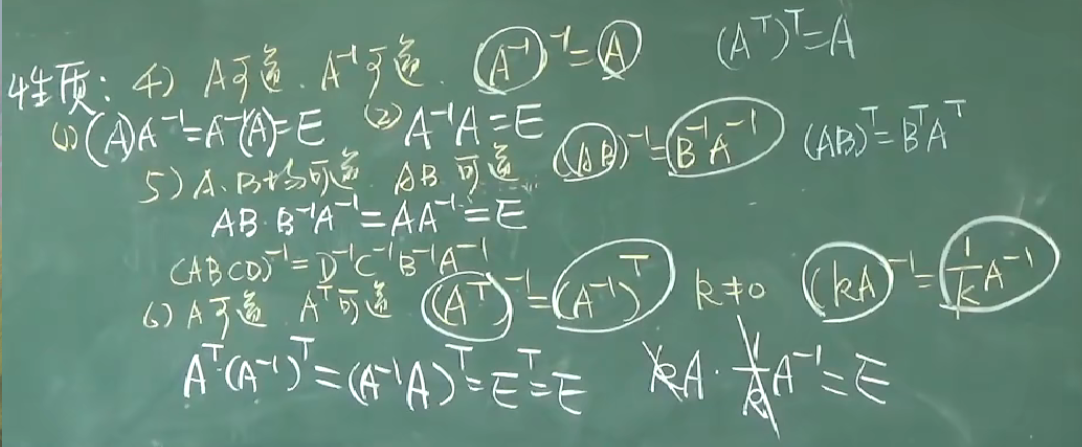 性质: 4) A可逆. A⁻¹可逆. (A⁻¹)⁻¹=A (Aᵀ)ᵀ=A
(1) (A)A⁻¹=A⁻¹(A)=E (2) A⁻¹A=E
5) A、B均可逆 AB可逆. (AB)⁻¹=B⁻¹A⁻¹ (AB)ᵀ=BᵀAᵀ
AB·B⁻¹A⁻¹=AA⁻¹=E
(ABCD)⁻¹=D⁻¹C⁻¹B⁻¹A⁻¹
6) A可逆 Aᵀ可逆 (Aᵀ)⁻¹=(A⁻¹)ᵀ k≠0 (kA)⁻¹=1/k A⁻¹
Aᵀ·(A⁻¹)ᵀ=(A⁻¹A)ᵀ=Eᵀ=E kA·1/k A⁻¹=E